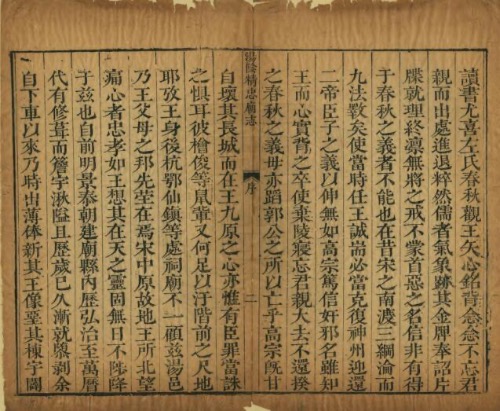 讀書尤喜左氏春秋觀王矢心銘背念念不忘君
親而出處進退粹然儒者氣象跡其金牌奉詔片
牒就理終凛無將之戒不蒙首惡之名信非有得
于春秋之義者不能也在昔宋之南渡三綱淪而
九法斁矣使當時任王誠耑必當克復神州迎還
二帝臣子之義以伸無如高宗篤信奸邪名雖知
王而心實背之卒使棄陵寢忘君親大去不還揆
之春秋之義毋亦蹈郭公之所以亡乎高宗旣甘
湯陰精忠廟志
序
二
自壞其長城而在王九原之心亦惟有臣罪當誅
之懼耳彼檜俊等鼠輩又何足以汙階前之尺地
耶攷王身後杭鄂仙鎮等處祠廟不一顧玆湯邑
乃王父母之邦先塋在焉宋中原故地王所北望
痛心者忠孝如王想其在天之靈固無日不陟降
于玆也自前明景泰朝建廟縣內歷弘治至萬曆
代有修葺而簷宇湫隘且歷歲已久漸就毀剥余
自下車以來乃時出薄俸新其王像堊其棟宇闢